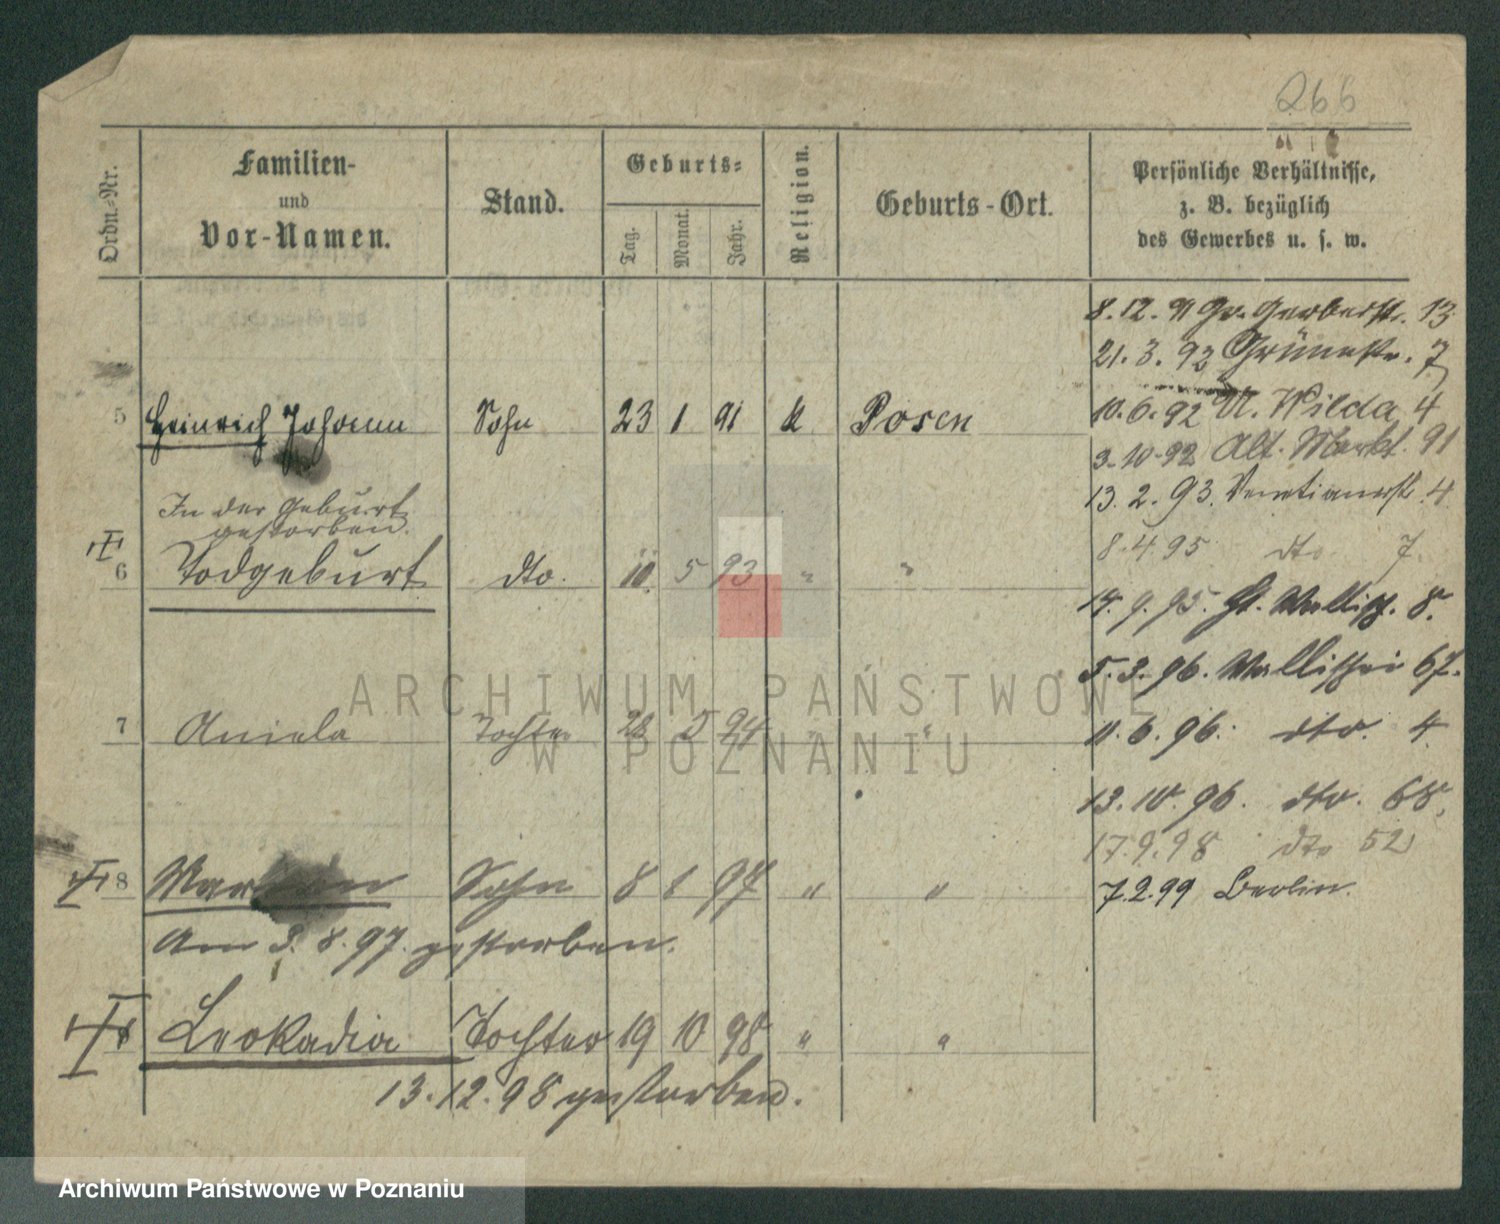 266
Ordn.-Nr.
Familien-
und
Vor-Namen.
Stand.
Geburts-
Tag.
Monat.
Jahr.
Religion.
Geburts-Ort.
Persönliche Verhältnisse,
z. B. bezüglich
des Gewerbes u. s. w.
8.12.91 Gr. Gerberstr. 13
21.3.92 Grünestr. 7
10.6.92 U. Wilda 4
3.10.92 Alt. Markt. 91
13.2.93. Venetianerstr. 4
8.4.95 dto 7.
14.9.95. St. Wallisch. 8.
5.3.96. Wallischei 67.
11.6.96. dto. 4
13.10.96. dto. 68,
17.9.98 dto 52
7.2.99 Berlin.
5 Heinrich Johann Sohn 23 1 91 k Posen
In der Geburt
gestorben.
6 Todgeburt dto. 10 5 93 " "
7 Aniela Tochter 28 5 94 " "
8 Marian Sohn 8 1 97 " "
Am 3.8.97. gestorben.
Leokadia Tochter 19 10 98 " "
13.12.98 gestorben.
ARCHIWUM PAŃSTWOWE
W POZNANIU
Archiwum Państwowe w Poznaniu